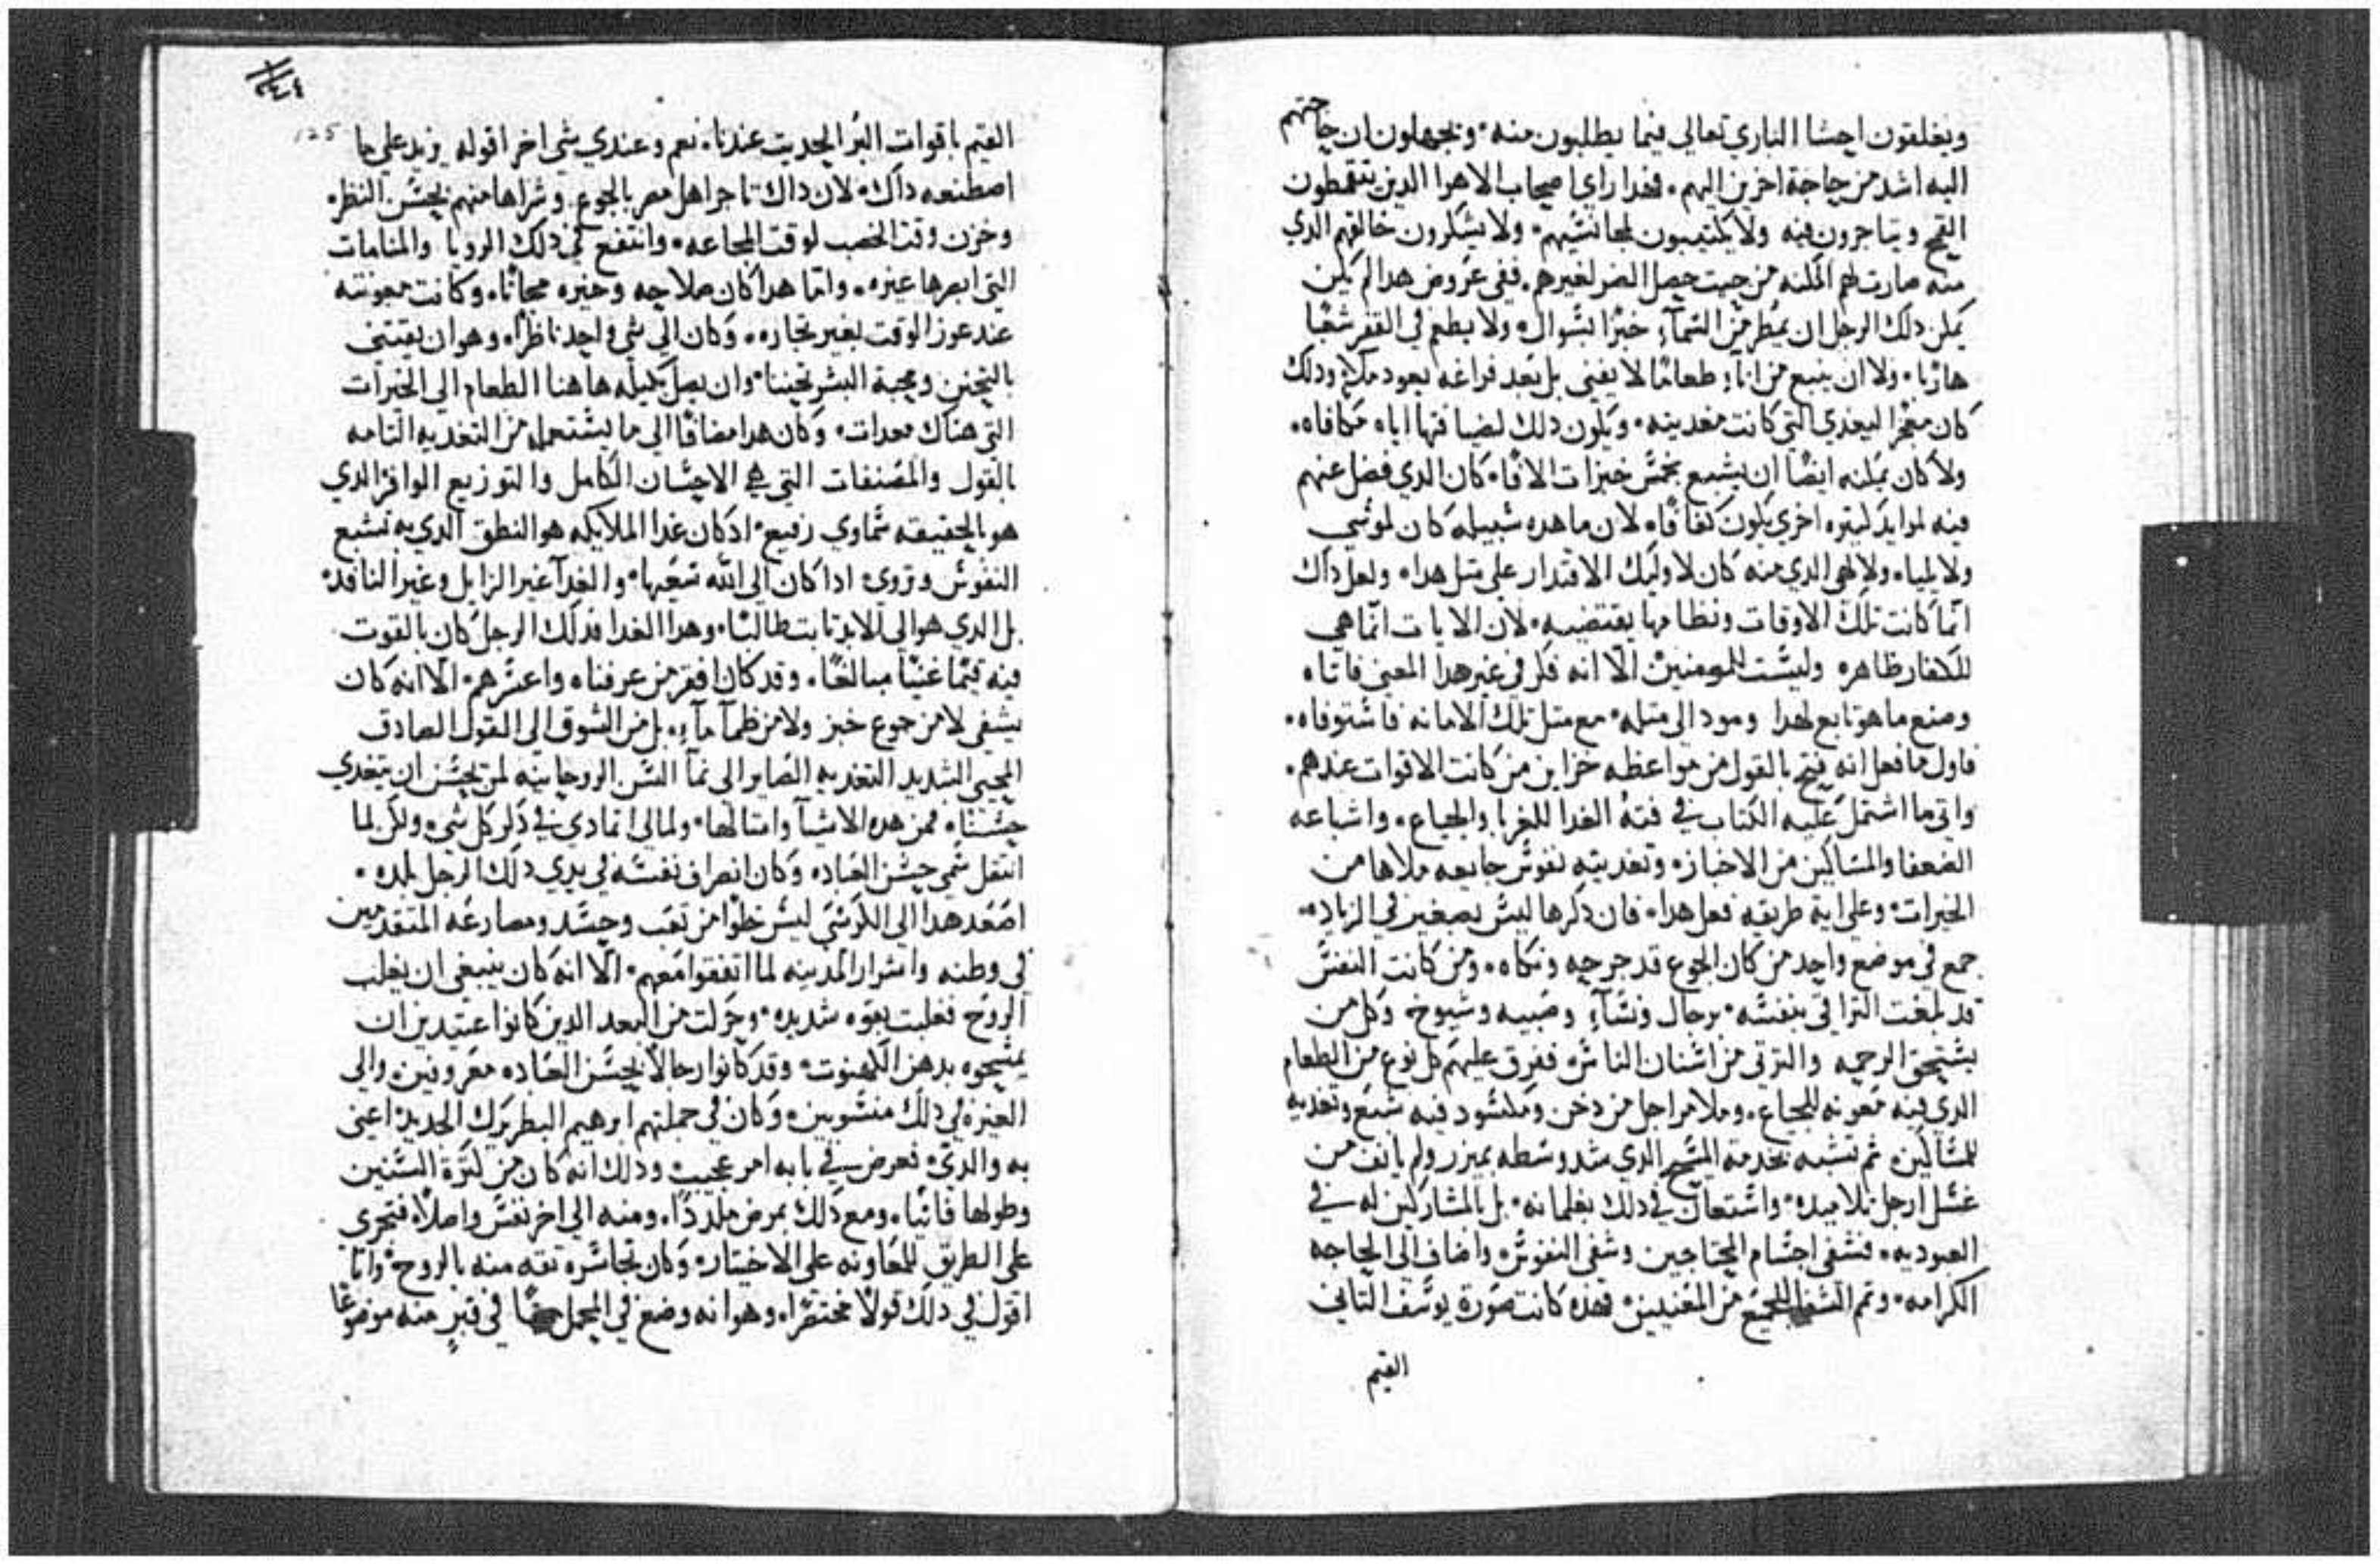 ويغلقون احشا الباري تعالي فيما يطلبون منه ويجهلون ان حاجتهم
اليه اشد من حاجة اخرين اليهم فهدا راي اصحاب الاهرا الدين يتقمطون
القمح ويتاجرون فيه ولا يكتيبون لمجانسيهم ولا يشكرون خالقهم الدي
منه صارت لهم المكنه من حيت حصل الضر لغيرهم ففي عروض هدا لم يكن
يمكن دلك الرجل ان يمطر من السماء خبزًا بسوال ولا يطعم في القفر شعبًا
هاربًا ولا ان ينبع من اناء طعامًا لا يفني بل بعد فراغه يعود ملا ودلك
كان معجزًا ليغدي التي كانت مغديته ويكون دلك لضيافتها اياه مكافاه
ولا كان يمكنه ايضًا ان يشبع بخمس خبزات الافًا كان الدي فضل عنهم
فيه لموايد كتيره اخري يكون كفافًا لان ما هده سبيله كان لموسي
ولايليا ولالهي الدي منه كان لاوليك الاقتدار علي متل هدا ولعل داك
انما كانت تلك الاوقات ونظامها يقتضيه لان الايات انما هي
للكفار ظاهره وليست للمومنين الا انه فكر في غير هدا المعني فاتاه
وصنع ما هو تابع لهدا ومود الي متله مع متل تلك الامانه فاستوفاه
فاول ما فعل انه فتح بالقول من مواعظه خزاين من كانت الاقوات عندهم
واتي ما اشتمل عليه الكتاب في فته الغدا للغربا والجياع واشباعه
الضعفا والمساكين من الاخباز وتغديته نفوس جايعه ملاها من
الخيرات وعلي اية طريقه فعل هدا فان دكرها ليس بصغير في الزياده
جمع في موضع واحد من كان الجوع قد جرحه ونكاه ومن كانت النفس
قد بلغت التراقي بنفسه برجال ونساء وصبيه وشيوخ وكل من
يستحق الرحمه والترتي من اسنان الناس ففرق عليهم كل نوع من الطعام
الدي فيه معونه للجياع وملا مراجل من دخن ومكسود فيه شبع وتغديه
للمساكين تم تشبه بخدمة المسيح الدي شد وسطه بميزر ولم يانف من
غسل ارجل تلاميده واستعان في دلك بغلمانه بل بالمشاركين له في
العبوديه فشفي اجسام المحتاجين وشفي النفوس واضاف الي الحاجه
الكرامه وتم الشفا للجميع من المعنيين فهده كانت صورة يوسف التاني
القيم
القيم باقوات البر الحديت عندنا نعم وعندي شي اخر اقوله يزيد علي ما
اصطنعه داك لان داك تاجر اهل مصر بالجوع وشراها منهم بحسن النظر
وخزن وقت الخصب لوقت المجاعه وانتفع في دلك الرويا والمنامات
التي ابصرها غيره واما هدا كان صلاحه وخيره مجانًا وكانت معونته
عند عوز الوقت بغير تجاره وكان الي شي واحد ناظرًا وهو ان يقتني
بالتحنن ومحبة البشر تحننا وان يصل بكيله هاهنا الطعام الي الخيرات
التي هناك معدات وكان هدا مضافًا الي ما يستعمله من التغديه التامه
بالقول والمصنفات التي هي الاحسان الكامل والتوزيع الوافر الدي
هو بالحقيقه سماوي رفيع اد كان غدا الملايكه هو النطق الدي به تشبع
النفوس وتروي ادا كان الي الله تبعها والغدا غير الزايل وغير النافد
بل الدي هو الي الابد تابت طالبًا وهدا الغدا فدلك الرجل كان بالقوت
فيه قيمًا غنيًا مبالغًا وقد كان افقر من عرفناه واعسرهم الا انه كان
يشفي لا من جوع خبز ولا من ظمآ مآء بل من الشوق الي القول الصادق
المحيي الشديد التغديه الصاير الي نمآ السن الروحانيه لمن يحسن ان يتغدي
حسنًا فمن هده الاشيآ وامتالها ولمالي اتمادي في دكر كل شي ولكن لما
انتقل سمي حسن العباده وكان انصراف نفسه في يدي دلك الرجل بلده
اصعد هدا الي الكرسي ليس خطوًا من تعب وحسد ومصارعه المتقدمين
في وطنه واشرار المدينه لما اتفقوا معهم الا انه كان ينبغي ان يغلب
الروح فغلبت بقوه شديده وحركت من البعد الدين كانوا عتيدين ان
يمسحوه بدهن الكهنوت وقد كانوا رجالًا بحسن العباده معروفين والي
الغيره في دلك منسوبين وكان في جملتهم ابرهيم البطريرك الجديد اعني
به والدي فعرض في بابه امر عجيب ودلك انه كان من كترة السنين
وطولها فانيًا ومع دلك بمرض مكددًا ومنه الي اخر نفس واصلًا فتجري
علي الطريق للمعاونه علي الاختيار وكان تجاسره تقه منه بالروح وانا
اقول في دلك قولًا مختصرًا وهو انه وضع في المحمل في قبرٍ منه موضوعًا
125